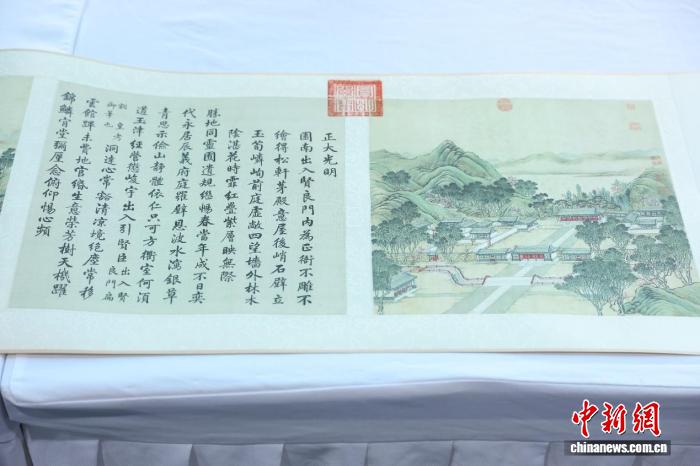 正大光明
園南出入賢良門內為正衙不雕不
繪得松軒茅殿意屋後峭石壁立
玉筍嶙峋前庭虛敞四望牆外林木
陰湛花時霏紅疊紫層映無際
勝地同靈囿遺規繼暢春當年成不日奕
代永居辰義府庭羅璧恩波水瀉銀草
青思示儉山靜體依仁只可方衢室何須
道玉津經營懲峻宇出入引賢臣出入賢良門扁
皇考御筆也洞達心常豁清涼境絕塵常移
雲館蹕未費地官緡生意榮芳樹天機躍
錦鱗肯堂彌厪念俯仰惕心頻
中新网
www.chinanews.com
chinanews.com.cn